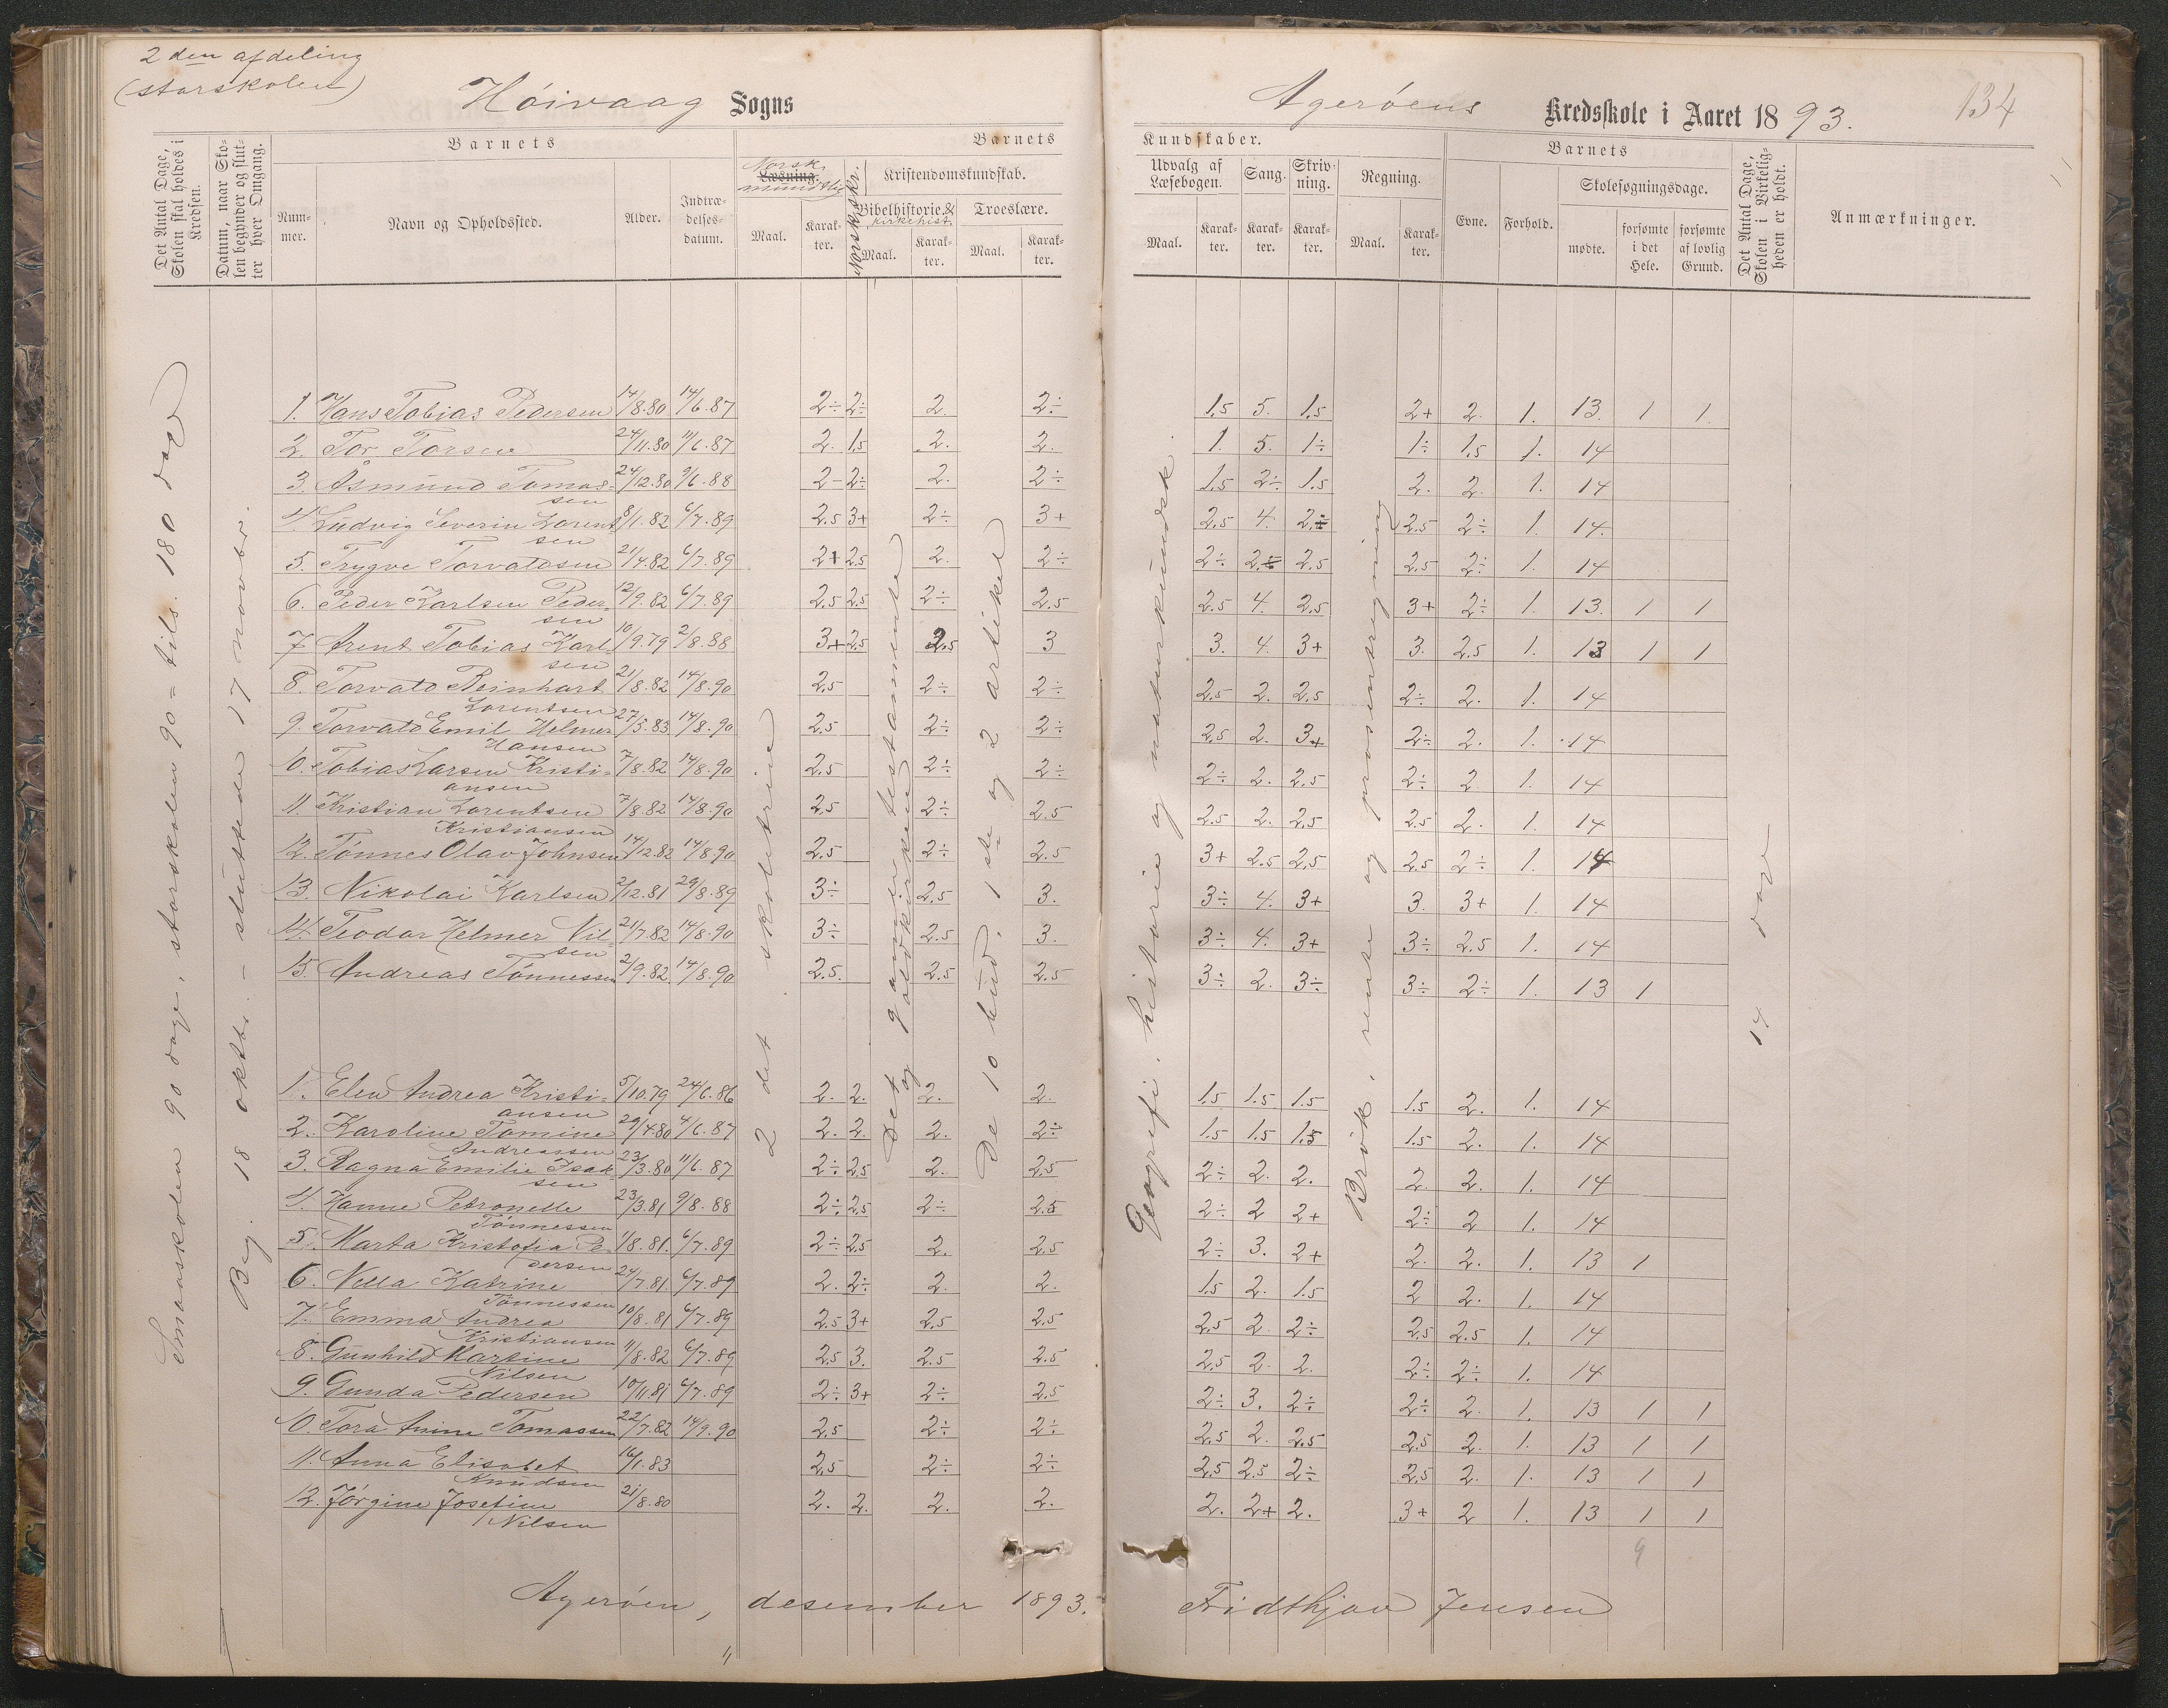 2 den afdeling
(storskolen)
Höivaag Sogns
Agerøens Kredsskole i Aaret 1893.
134
Det Antal Dage, Skolen skal holdes i Kredsen.
Datum, naar Skolen begynder og slutter hver Omgang.
Barnets
Nummer.
Navn og Opholdssted.
Alder.
Indtrædelsesdatum.
Barnets
Norsk
Læsning.
mundtlig
Maal. Karakter.
Norsk skr.
Kristendomskundskab.
Bibelhistorie. & kirkehist.
Maal. Karakter.
Troeslære.
Maal. Karakter.
Kundskaber.
Udvalg af Læsebogen.
Maal. Karakter.
Sang.
Karakter.
Skrivning.
Karakter.
Regning.
Maal. Karakter.
Barnets
Evne.
Forhold.
Skolesøgningsdage.
mødte.
forsømte i det Hele.
forsømte af lovlig Grund.
Det Antal Dage, Skolen i Virkeligheden er holdt.
Anmærkninger.
Smaaskolen 90 dage, storskolen 90 = tils. 180 dage
Beg. 18 oktbr. – sluttede 17 novbr.
2 det skoletrin
Det gamle testamente
og oldkirken
De 10 bud, 1ste og 2 artikel
Geografi, historie og naturkundsk.
Brøk, rente og prosentregning
14 dage
1. Hans Tobias Pedersen 14/8.80 14/6.87 2÷ 2÷ 2. 2÷ 1,5 5. 1,5 2+ 2. 1. 13. 1 1
2. Tor Torsen 24/11.80 11/6.87 2. 1,5 2. 2. 1. 5. 1÷ 1÷ 1,5 1. 14
3. Åsmund Tomassen 24/12.80 9/6.88 2– 2÷ 2. 2÷ 1,5 2÷ 1.5 2. 2. 1. 14
4. Ludvig Severin Lorentsen 8/1.82 6/7.89 2.5 3+ 2÷ 3+ 2,5 4. 2÷ 2,5 2÷ 1. 14.
5. Trygve Torvaldsen 21/4.82 6/7.89 2+ 2.5 2. 2÷ 2÷ 2÷ 2.5 2.5 2÷ 1. 14
6. Peder Karlsen Pedersen 12/9.82 6/7.89 2,5 2,5 2÷ 2.5 2.5 4. 2,5 3+ 2÷ 1. 13. 1 1
7 Arent Tobias Karlsen 10/9.79 2/8.88 3+ 2,5 2,5 3 3. 4. 3+ 3. 2.5 1. 13 1 1
8. Torvald Reinhart Lorentsen 21/8.82 14/8.90 2,5 2÷ 2÷ 2,5 2. 2,5 2÷ 2. 1. 14
9. Torvald Emil Helmer Hansen 27/5.83 14/8.90 2,5 2÷ 2÷ 2,5 2. 3+ 2÷ 2. 1. 14
10. Tobias Larsen Kristiansen 7/8.82 14/8.90 2,5 2÷ 2÷ 2÷ 2. 2,5 2÷ 2 1. 14
11. Kristian Lorentsen Kristiansen 7/8.82 14/8.90 2,5 2÷ 2.5 2.5 2. 2,5 2.5 2. 1. 14
12. Tønnes Olav Johnsen 14/12.82 14/8.90 2,5 2÷ 2.5 3+ 2.5 2,5 2,5 2÷ 1. 14
13. Nikolai Karlsen 2/12.81 29/8.89 3÷ 2,5 3. 3÷ 4. 3+ 3. 3+ 1. 14
14. Teodor Helmer Nilsen 21/7.82 14/8.90 3÷ 2.5 3. 3÷ 4. 3+ 3÷ 2.5 1. 14
15. Andreas Tönnessen 2/9.82 14/8.90 2.5. 2.5 2.5 3÷ 2. 3÷ 3÷ 2÷ 1. 13 1
1. Elen Andrea Kristiansen 5/10.79 24/6.86 2. 2. 2. 2. 1.5 1.5 1.5 1.5 2. 1. 14
2. Karoline Tomine Andreassen 29/4.80 4/6.87 2. 2. 2. 2÷ 1.5 1.5 1.5 1.5 2. 1. 14
3. Ragna Emilie Isaksen 23/3.80 11/6.87 2÷ 2,5 2. 2,5 2÷ 2. 2. 2. 2. 1. 14
4. Hanne Petronelle Tönnessen 23/3.81 9/8.88 2÷ 2,5 2÷ 2.5 2÷ 2 2+ 2÷ 2 1. 14
5. Marta Kristofia Pedersen 1/8.81. 6/7.89 2÷ 2,5 2. 2,5 2÷ 3. 2+ 2. 2. 1. 13 1
6. Nella Katrine Tönnessen 24/7.81. 6/7.89 2. 2÷ 2. 2. 1.5 2. 1.5 2 2. 1. 14
7. Emma Andrea Kristiansen 10/8.81 6/7.89 2.5 3+ 2,5 2.5 2,5 2 2÷ 2,5 2.5 1. 14
8. Gunhild Martine Nilsen 11/8.82 6/7.89 2,5 3. 2.5 2.5 2,5 2. 2. 2÷ 2÷ 1. 14
9. Gunda Pedersen 10/11.81 6/7.89 2÷ 3+ 2÷ 2,5 2÷ 3. 2÷ 2÷ 2. 1. 13 1 1
10. Tora Anine Tomassen 22/7.82 14/9.90 2,5 2÷ 2÷ 2,5 2. 2,5 2,5 2. 1. 13 1 1
11. Anna Elisabet Knudsen 16/1.83 2,5 2÷ 2÷ 2,5 2.5 2÷ 2,5 2. 1. 13 1 1
12. Jörgine Josefine Nilsen 21/8.80 2. 2. 2. 2. 2. 2+ 2. 3+ 2 1. 13 1 1
9
Agerøen, desember 1893. Fridthjov Jensen